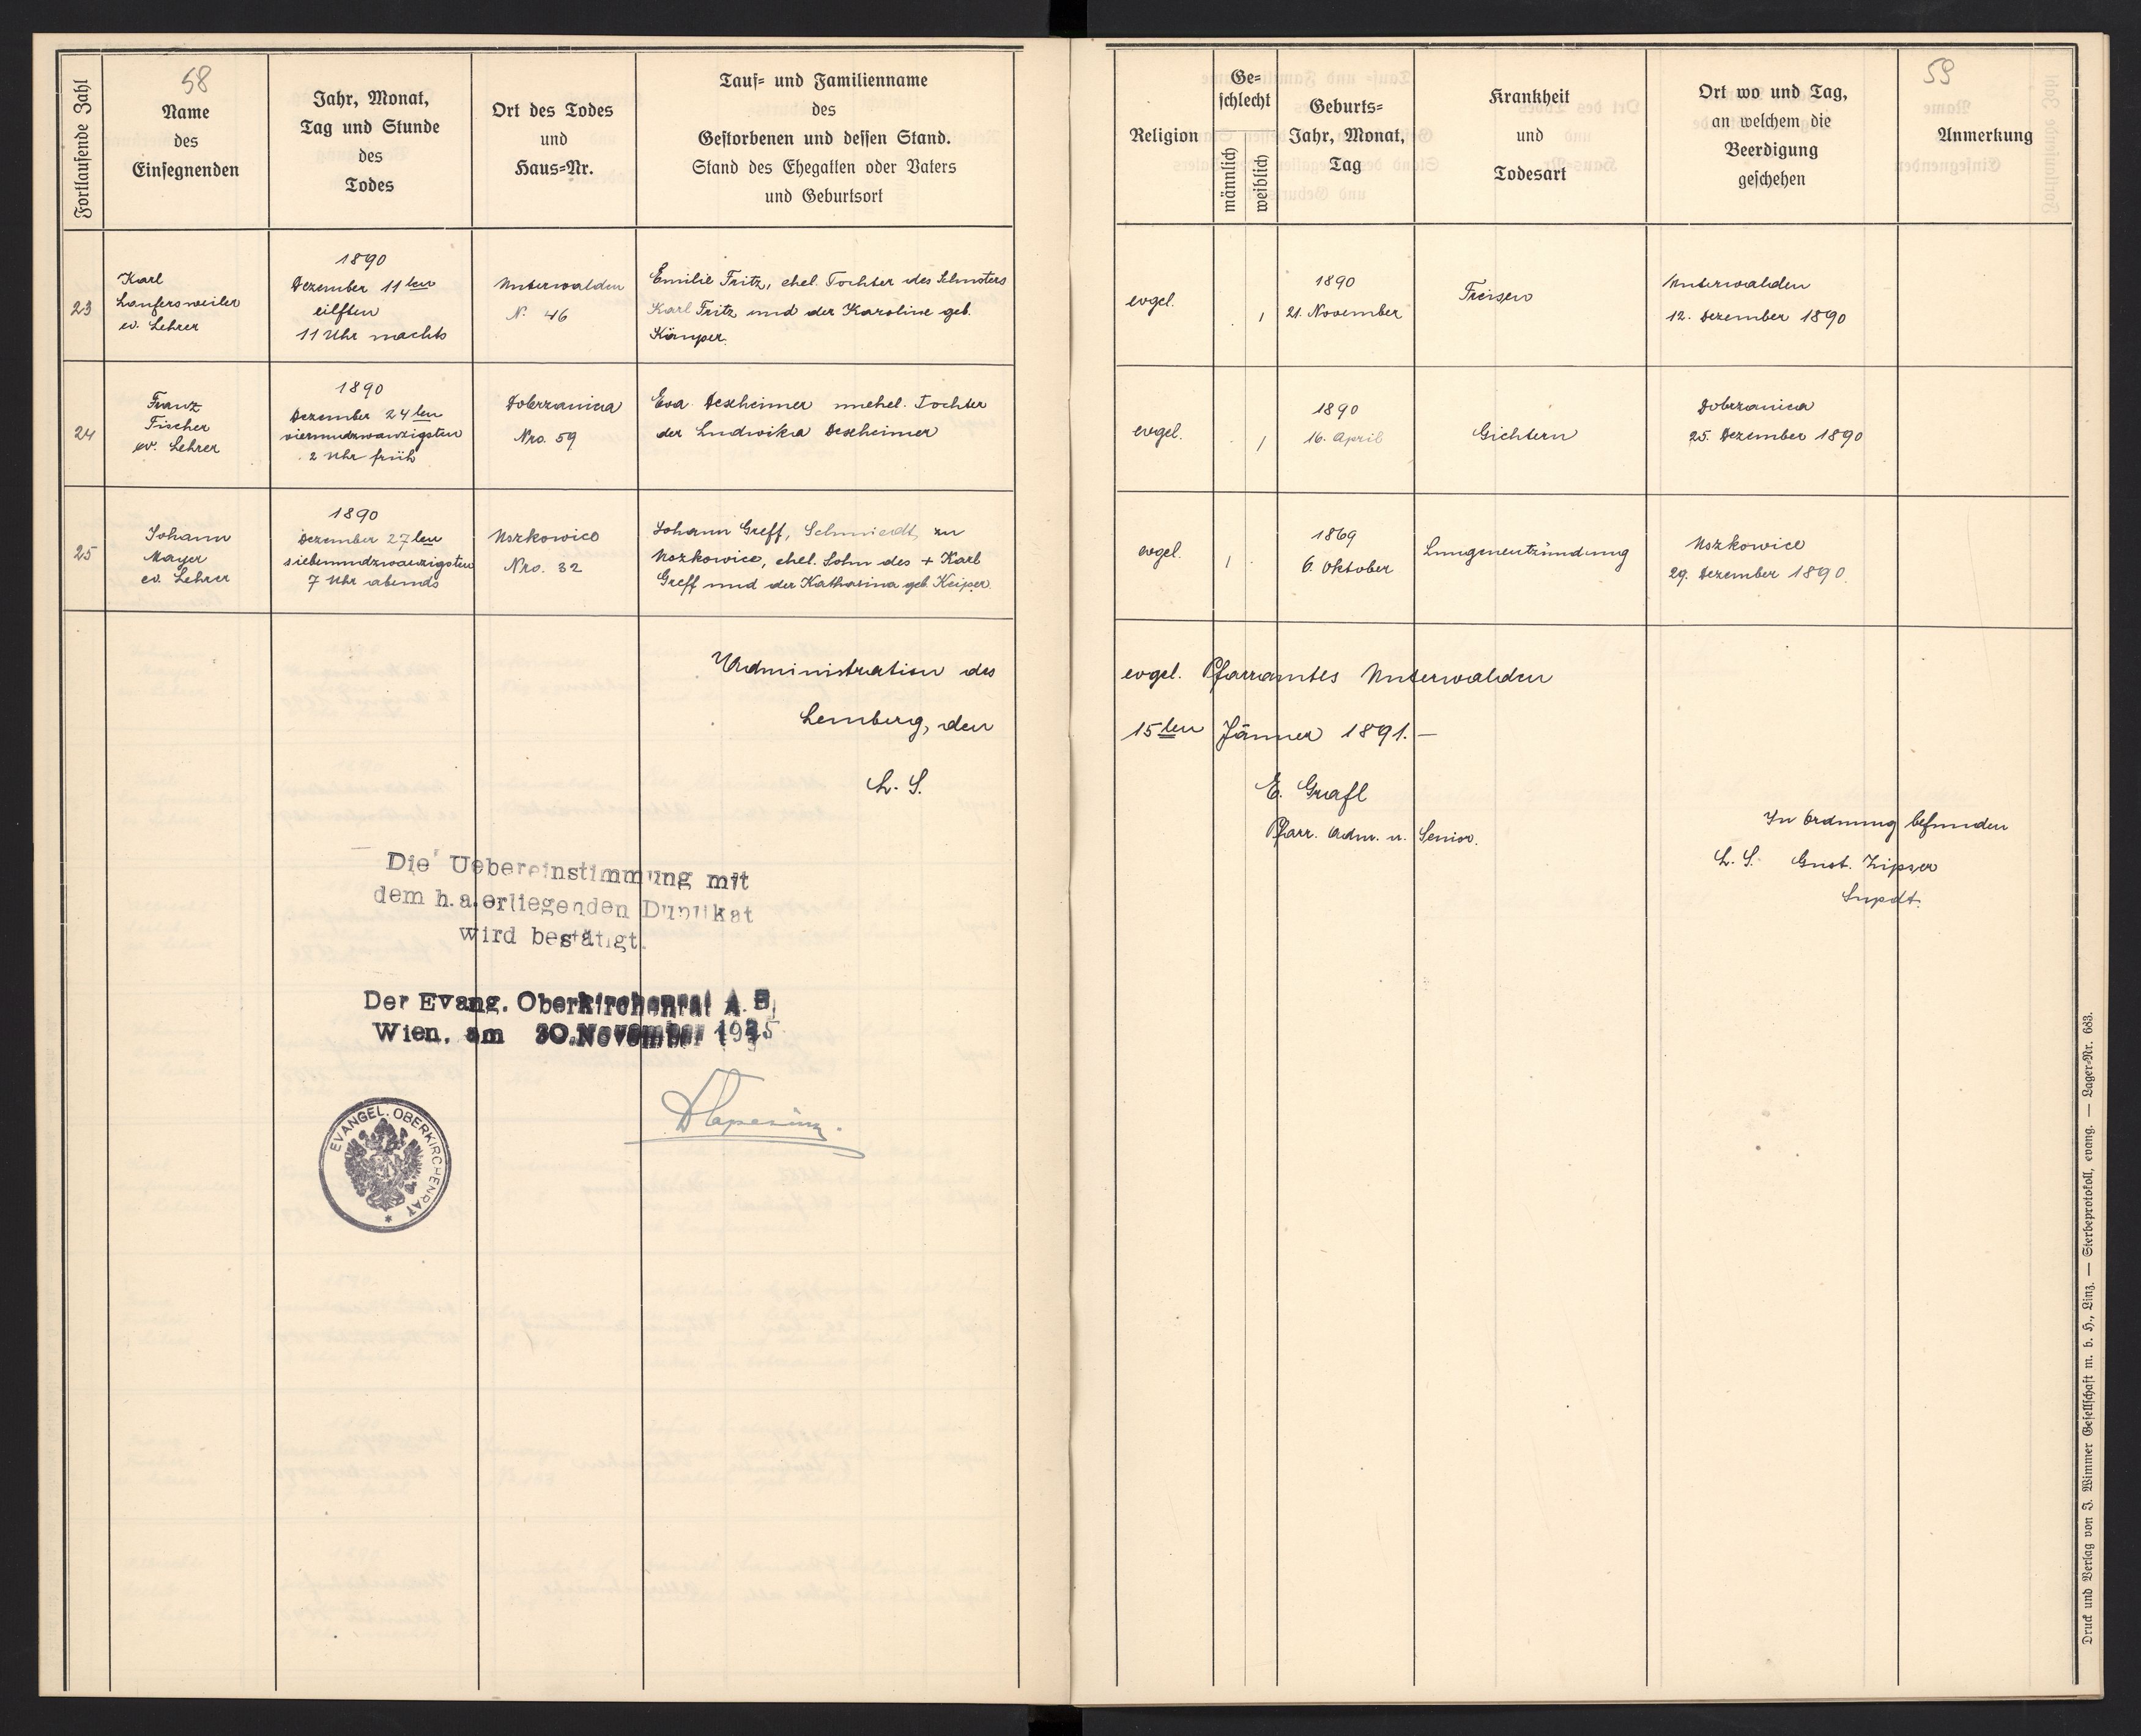 58
Fortlaufende Zahl
Name
des
Einsegnenden
Jahr, Monat,
Tag und Stunde
des
Todes
Ort des Todes
und
Haus-Nr.
Tauf- und Familienname
des
Gestorbenen und dessen Stand.
Stand des Ehegatten oder Vaters
und Geburtsort
23
Karl
Laufersweiler
ev. Lehrer
1890
Dezember 11ten
eilften
11 Uhr nachts
Unterwalden
N. 46
Emilie Fritz, ehel. Tochter des Schusters
Karl Fritz und der Karoline geb.
Kämper.
24
Franz
Fischer
ev. Lehrer
1890
Dezember 24ten
vierundzwanzigsten
2 Uhr früh
Dobrzanica
Nro. 59
Eva Dexheimer unehel. Tochter
der Ludwika Dexheimer
25
Johann
Mayer
ev. Lehrer
1890
Dezember 27ten
siebenundzwanzigsten
7 Uhr abends
Uszkowice
Nro. 32
Johann Greff, Schmiedt, zu
Uszkowice, ehel. Sohn des + Karl
Greff und der Katharina geb. Keiper.
Administration des
Lemberg, den
L. S.
Die Uebereinstimmung mit
dem h.a.erliegenden Duplikat
wird bestätigt.
Der Evang. Oberkirchenrat A. B.
Wien, am 30. November 1935
EVANGEL. OBERKIRCHENRAT
59
Religion
Ge-
schlecht
männlich
weiblich
Geburts-
Jahr, Monat,
Tag
Krankheit
und
Todesart
Ort wo und Tag,
an welchem die
Beerdigung
geschehen
Anmerkung
evgel.
1
1890
21. November
Freisen
Unterwalden
12. Dezember 1890
evgel.
1
1890
16. April
Gichtern
Dobrzanica
25. Dezember 1890
evgel.
1
1869
6. Oktober
Lungenentzündung
Uszkowice
29. Dezember 1890.
evgel. Pfarramtes Unterwalden
15ten Jänner 1891.—
E. Grafl
Pfarr. Adm. u. Senior.
In Ordnung befunden
L. S. Gust. Zipser
Supdt.
Druck und Verlag von J. Wimmer Gesellschaft m. b. H., Linz. — Sterbeprotokoll, evang. — Lager-Nr. 683.